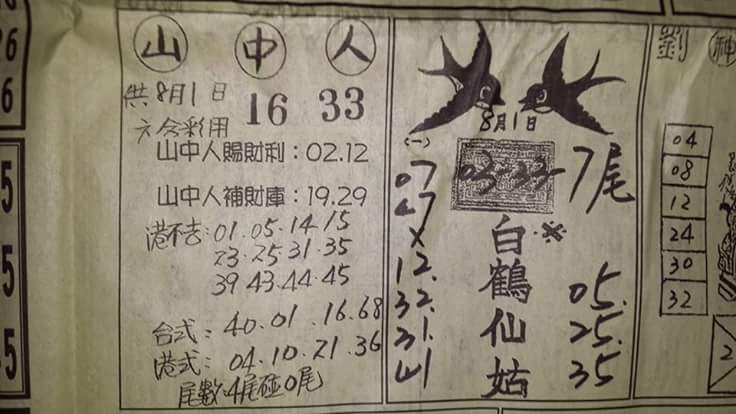 山中人
供8月1日
六合彩用
16 33
山中人賜財利：02.12
山中人補財庫：19.29
港不吉：01.05.14.15
23.25.31.35
39.43.44.45
台式：40.01.16.68
港式：04.10.21.36
尾數：4尾碰0尾
8月1日
(一)
03-33-7尾
07
47
×
12.
32.
31.
41
白鶴仙姑
※
05.
25.
35
劉神
04
08
12
24
30
32
2
6
26
6
5
5
5